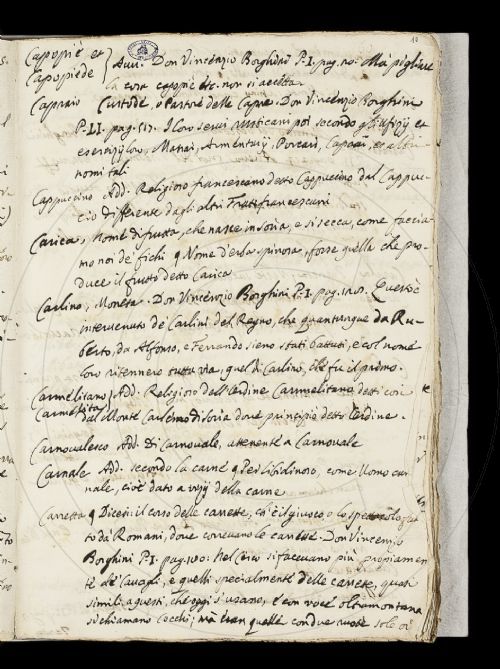 10
Capopiè et
Capopiede } Avv. Don Vincenzio Borghini P.I. pag. 20. Ma pigliare
la cosa capopiè etc. non si accetta.
Capraio Custode, o Pastore delle Capre. Don Vincenzio Borghini
P. II. pag. 517. I loro servi rusticani poi secondo gli ufizij et
esercizij loro, Massai, Armentarij, Porcari, Caprai, et altri
nomi tali
Cappuccino Add. Religioso francescano detto Cappuccino dal Cappuc-
cio differente dagli altri Frati francescani
Carica, Nome di frutta, che nasce in Soria, e si secca, come faccia-
mo noi de' fichi q Nome d'erba spinosa, forse quella che pro-
duce il frutto detto Carica
Carlino, Moneta. Don Vincenzio Borghini P.I. pag. Questo è
intervenuto de Carlini del Regno, che quantunque da Ru-
berto, da Alfonso, e Ferrando sieno stati battuti, e col nome
loro ritennero tutta via, quel di Carlino, che fu il primo.
Carmelitano Add. Religioso dell'Ordine Carmelitano, detti così
Carmelita dal Monte Carmeno di Soria dove principiò detto Ordine.
Carnovalesco Add. Di Carnovale, attenente a Carnovale
Carnale Add. secondo la carne q Per libidinoso, come Uomo car-
nale, cioè dato a vizij della carne
Carretta q Dicesi: il corso delle carrette, ch'è il giuoco o lo spettacolo
to da Romani, dove correvano le carrette. Don Vincenzio
Borghini P.I. pag. 180: Nel Circo si facevano più propriamen-
te de' Cavagli, e quelli specialmente delle carrete, quasi
simili a questi, che oggi s'usano, e con voce oltramontana
si chiamano Cocchi; ma eran quelle con due ruote sole